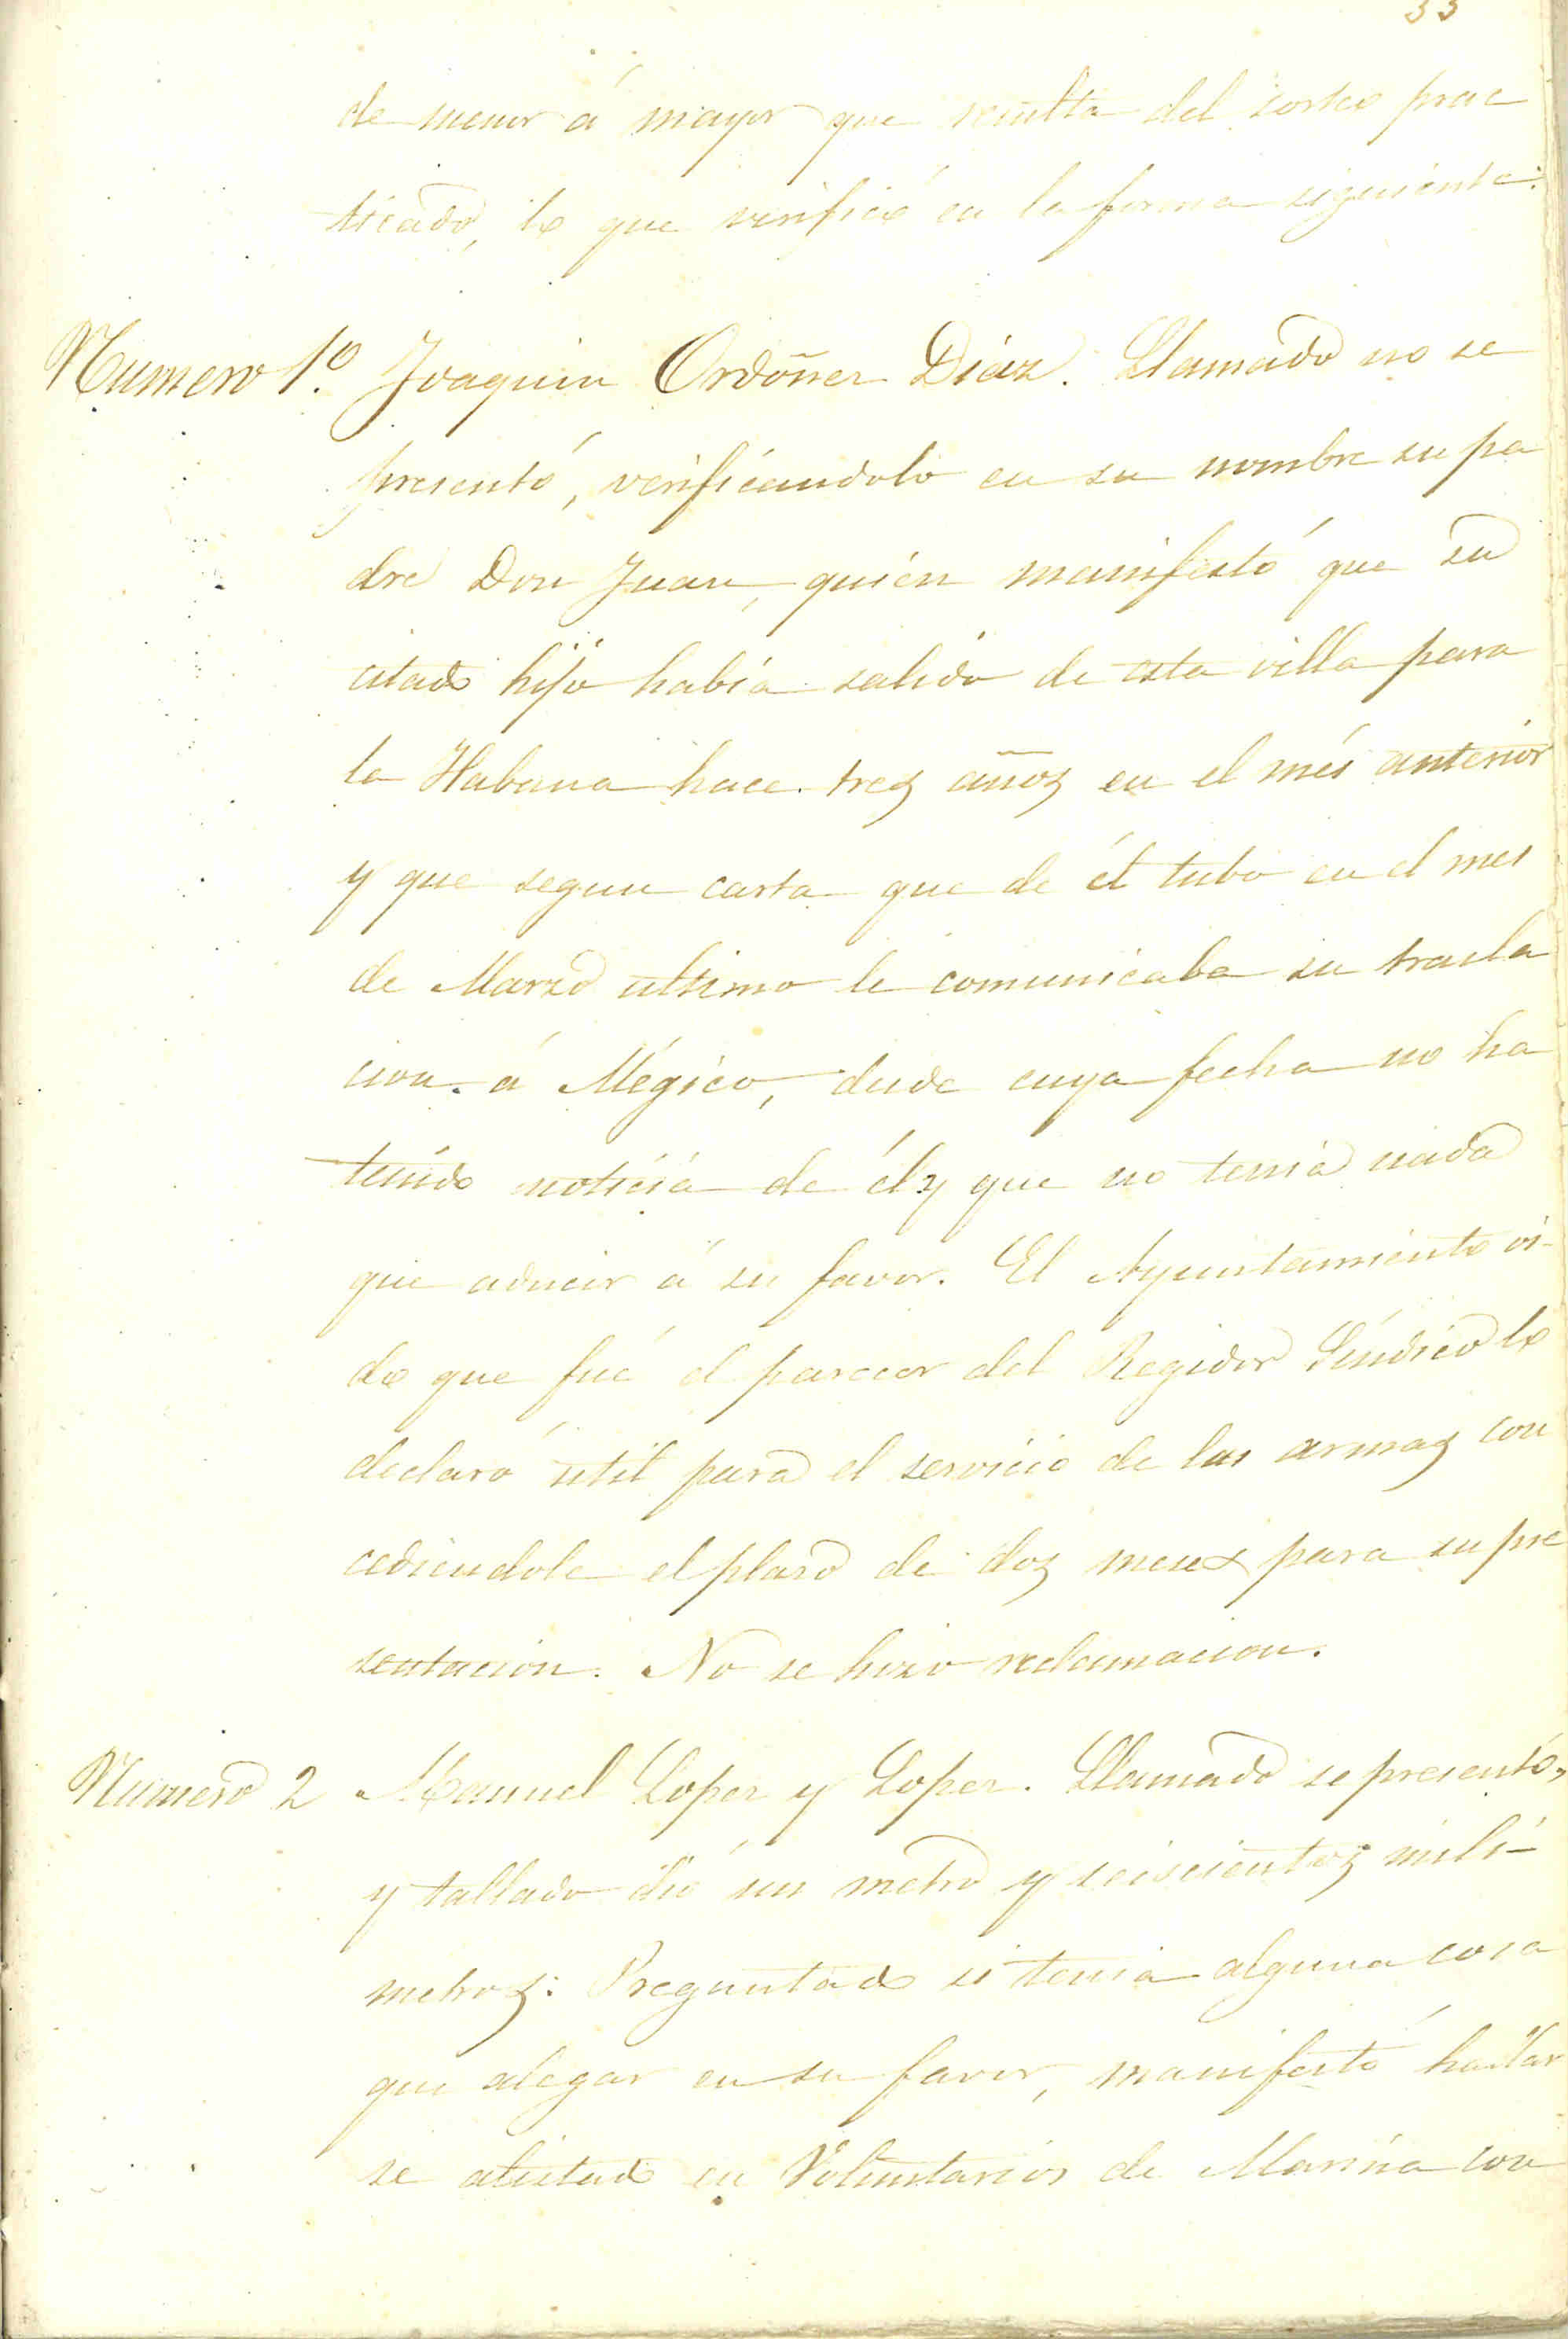 33
de menor á mayor que resulta del sorteo prac
ticado, lo que verificó en la forma siguiente:
Numero 1.º Joaquin Ordoñez Diáz. Llamado no se
presentó, verificandolo en su nombre su pa
dre Don Juan, quien manifestó que su
citado hijo habia salido de esta villa para
la Habana hace tres años en el més anterior
y que segun carta que de él tubo en el mes
de Marzo ultimo le comunicaba su trasla
cion á Mégico, desde cuya fecha no ha
tenido noticia de él y que no tenia nada
que aducir á su favor. El Ayuntamiento oi-
do que fué el parecer del Regidor Síndico lo
declaró util para el servicio de las armas con
cediendole el plaso de dos meses para su pre
sentacion. No se hizo reclamacion.
Numero 2 Manuel Lopez y Lopez. Llamado se presentó,
y tallado dió un metro y seiscientos mili-
metros: Preguntado si tenia alguna cosa
que alegar en su favor, manifestó hallar
se alistado en Voluntarios de Marina con